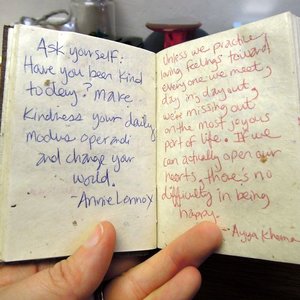 Ask yourself:
Have you been kind
today? make
kindness your daily
modus operandi
and change your
world.
-Annie Lennox
Unless we practice
loving feelings toward
everyone we meet,
day in, day out,
we're missing out
on the most joyous
part of life. If we
can actually open our
hearts, there's no
difficulty in being
happy.
-Ayya Khema